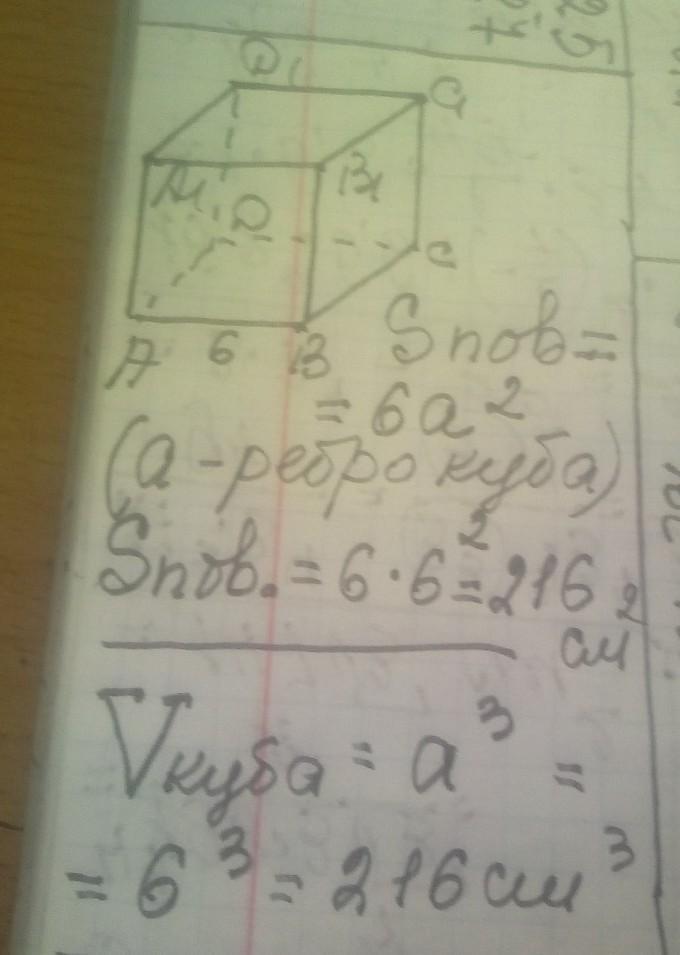 25
27
D₁ C₁
A₁ B₁
D C
A 6 B Sпов=
= 6a²
(a - ребро куба)
Sпов. = 6 · 6² = 216 см²
Vкуба = a³ =
= 6³ = 216 см³